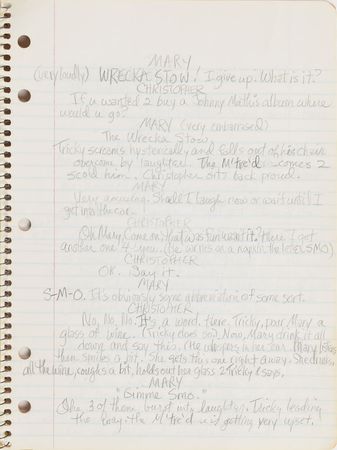 MARY
(very loudly) WRECKA STOW! I give up. What is it?
CHRISTOPHER
If u wanted 2 buy a Johnny Mathis album where
would u go?
MARY (very embarrassed)
The Wrecka Stow.
Tricky screams hysterically and falls out of his chair
overcome by laughter. The M'tre'd comes 2
scold him. Christopher sits back proud.
MARY
Very amusing. Shall I laugh now or wait until I
get into the car.
CHRISTOPHER
Oh Mary, come on that was fun wasn't it? Here I got
another one 4 you. (he writes on a napkin the letters SMO)
CHRISTOPHER
OK. Say it.
MARY
S-M-O. It's obviously some abbreviation of some sort.
CHRISTOPHER
No, No, No. It's a word. Here, Tricky, pour Mary a
glass of wine. (Tricky does so) Now, Mary drink it all
down and say this. (He whispers in her ear. Mary
then smiles a bit. She gets this one right away. She drinks
all the wine, coughs a bit, holds out her glass 2 Tricky & says.
MARY
"Gimme Smo."
The 3 of them burst into laughter. Tricky leading
the way. The M'tre'd is getting very upset.